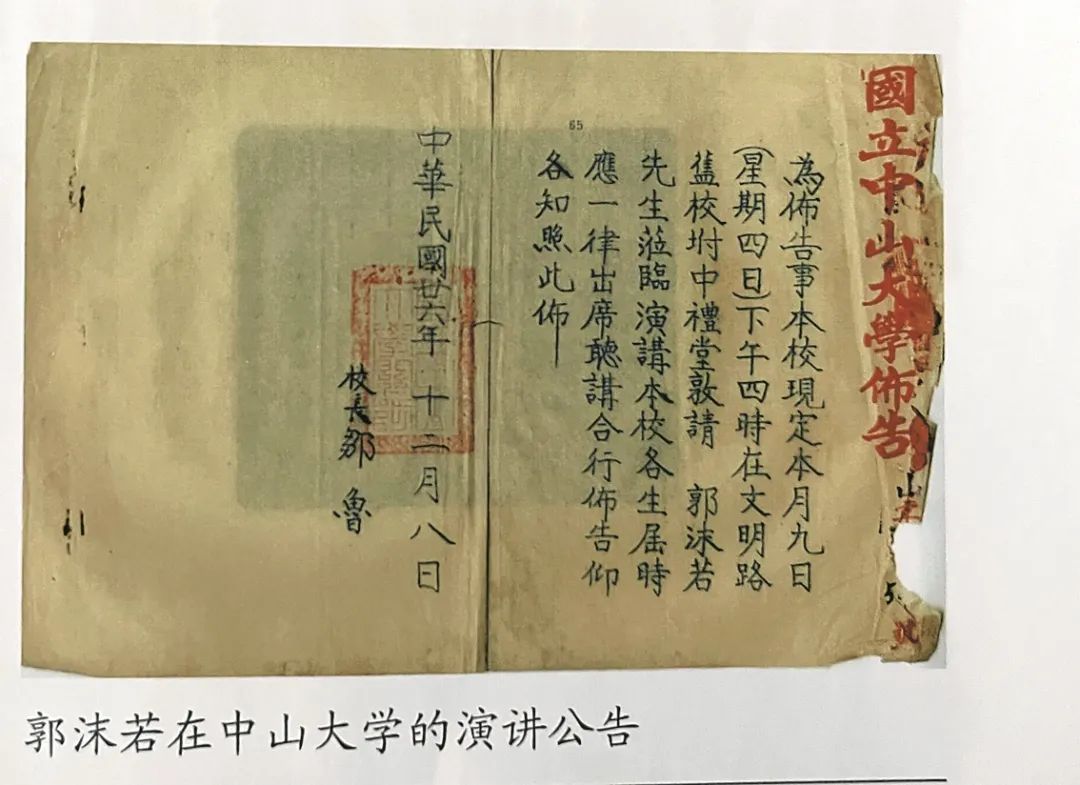 國立中山大學佈告
為佈告事本校現定本月九日
(星期四日)下午四時在文明路
舊校坿中禮堂敦請 郭沫若
先生蒞臨演講本校各生屆時
應一律出席聽講合行佈告仰
各知照此佈
65
中華民國廿六年十二月八日
校長鄒魯
郭沫若在中山大学的演讲公告